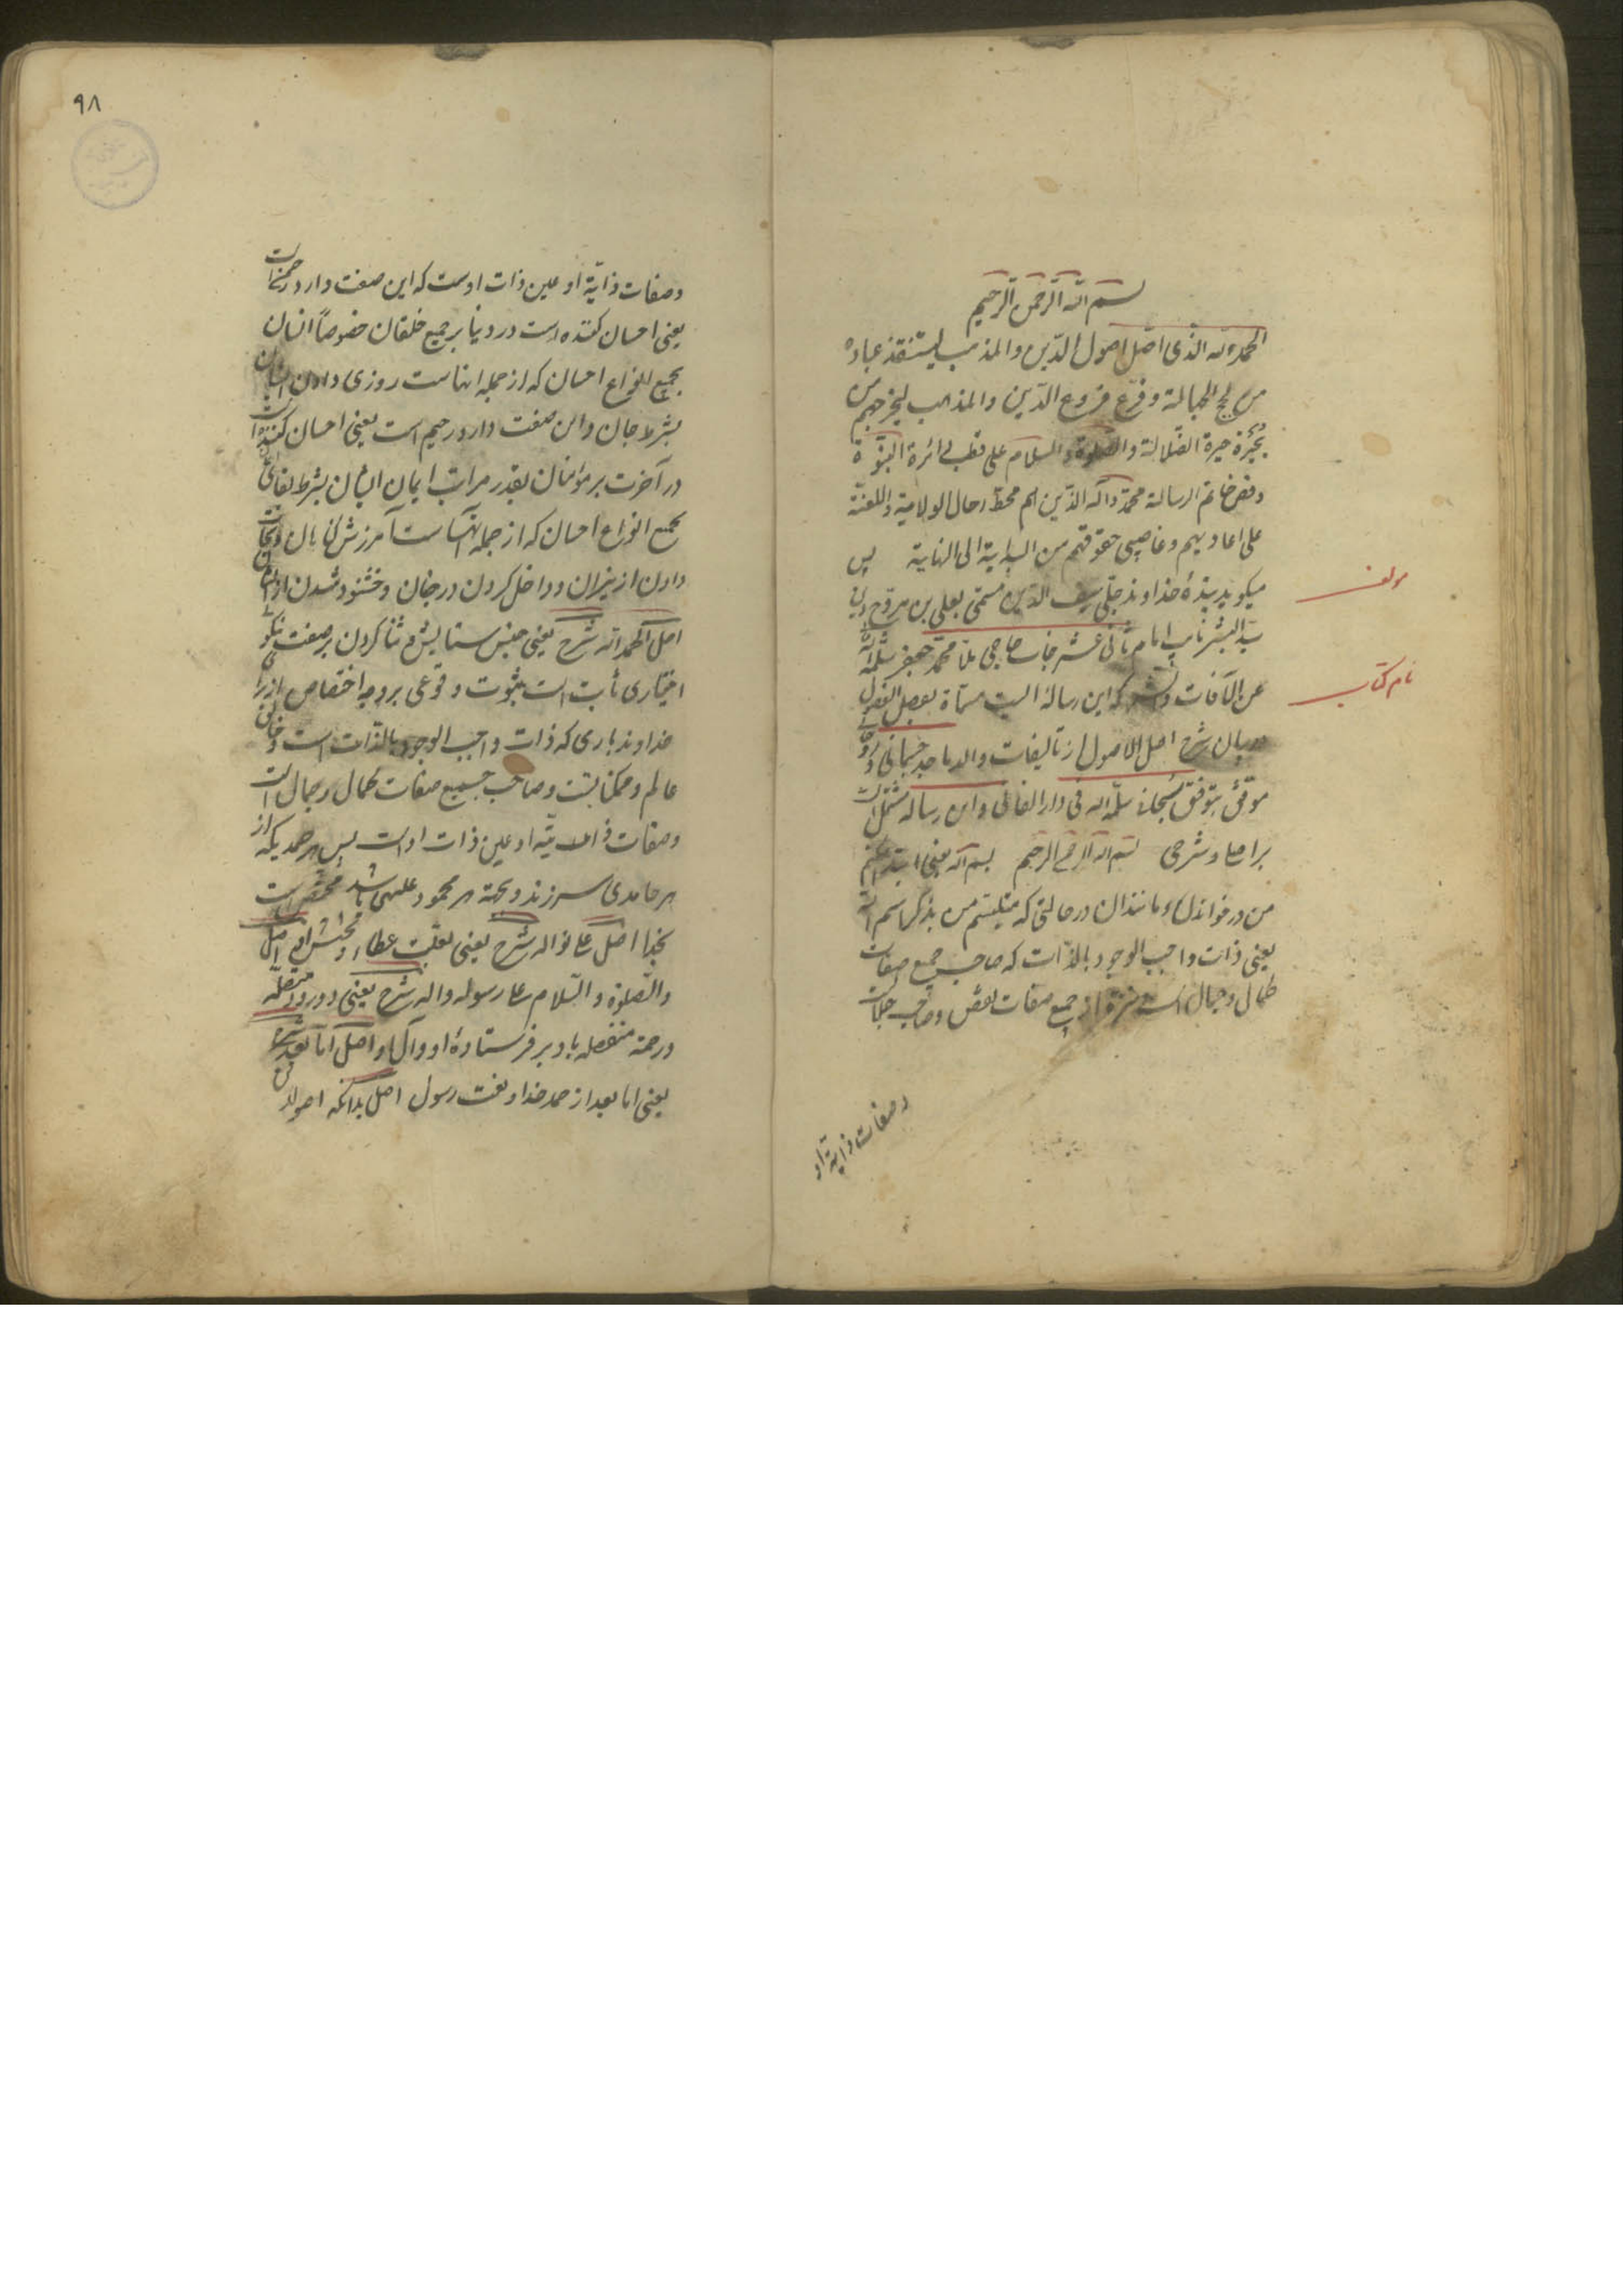 بسم الله الرحمن الرحیم
الحمد لله الذی اصّل اصول الدّین والمذهب لیستنقذ عباده
من لجج الجهالة وفرّع فروع الدّین والمذهب لیخرجهم من
حیرة الضّلالة والصّلوة والسلام علی قطب دائرة النبّوة
وفص خاتم الرسالة محمّد وآله الذّین هم محطّ رحال الولایة واللعنة
علی اعادیهم وغاصبی حقوقهم من البدایة الی النهایة پس
میگوید بندهٔ خداوند جلی سیف الدّین مسمّی بعلی بن مروّج دین
سیّد البشر نایب امام ثانی عشر جناب حاجی ملّا محمّد جعفر سلّمه الله
عن الآفات که این رساله ایست مسمّاة بفصل الفصول
در بیان شرح اصل الاصول از تالیفات والد ماجد جسمانی و روحانی
موفّق بتوفیق سبحانی سلّمه الله فی دار الفانی واین رساله مشتمل است
بر اصل و شرحی بسم الله الرحمن الرحیم بسم الله یعنی ابتدا میکنم
من در خواندن و مانند ان در حالتی که متلبّسم من بذکر اسم الله
یعنی ذات واجب الوجود بالذّات که صاحب جمیع صفات
کمال و جمال است و منزّه از جمیع صفات نقص و صاحب جلالت
وصفات ذاتیّة او
مولف
نام کتاب
۹۸
وصفات ذاتیّة او عین ذات اوست که این صفت دارد رحمن است
یعنی احسان کننده است در دنیا بر جمیع خلقان خصوصاً انسان
بجمیع انواع احسان که از جمله انهاست روزی دادن ایشان
بشرط جان و این صفت دارد رحیم است یعنی احسان کننده است
در آخرت بر مؤمنان بقدر مراتب ایمان ایشان بشرط بقای
بجمیع انواع احسان که از جمله آنهاست آمرزش گناهان و نجات
دادن از نیران و داخل کردن در جنان و خشنود شدن از ایشان
اصل الحمد لله شرح یعنی جنس ستایش و ثنا کردن بر صفت نیکوی
اختیاری ثابت است بثبوت وقوعی بر وجه اختصاص از برای
خداوند باری که ذات واجب الوجود بالذّات است و خالق
عالم و ممکناتست و صاحب جمیع صفات کمال و جمال است
وصفات ذاتیّه او عین ذات اوست پس هر حمدیکه از
هر حامدی سر زند و بجهة هر محمود علیهی باشد مختص است
بخدا اصل علی نواله شرح یعنی بعلّت عطاء و بخشش او اصل
والصّلوة والسّلام علی رسوله واله شرح یعنی و درود متصله
ورحمة منفصله باد بر فرستادهٔ او و آل او اصل امّا بعد شرح
یعنی اما بعد از حمد خدا و نعت رسول اصل بدانکه اصول دین